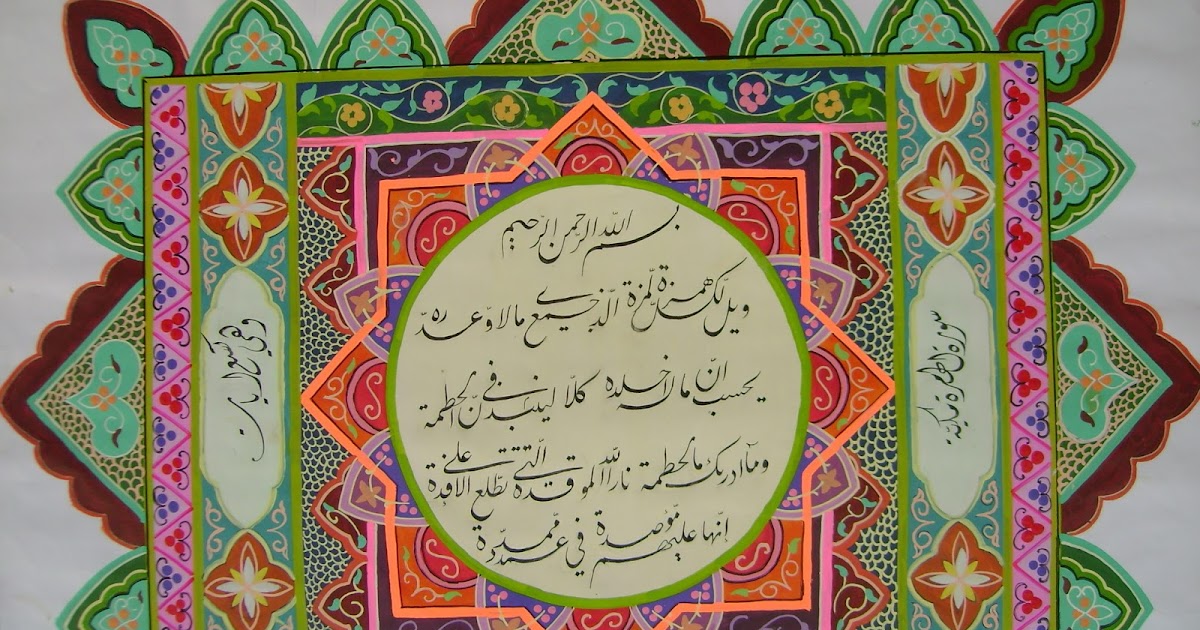 سورة الهمزة مكية
بسم الله الرحمن الرحيم
ويل لكل همزة لمزة الذي جمع مالا وعدده
يحسب انّ ماله اخلده كلا لينبذنّ في الحطمة
وما ادريك ما الحطمة نار الله الموقدة الّتي تطّلع على الافدة
انّها عليهم مؤصدة في عمد ممدّدة
وهي تسع ايات